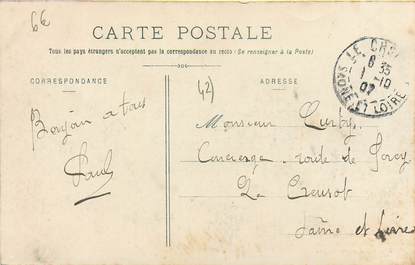 6€
CARTE POSTALE
Tous les pays étrangers n'acceptent pas la correspondance au recto (Se renseigner à la Poste)
CORRESPONDANCE
ADRESSE
42)
LE CREUSOT
6 35
1 - 10
07
SAONE ET LOIRE
Bonjour a tous
Paul
Monsieur
Concierge route de
Le Creusot
Saône et Loire